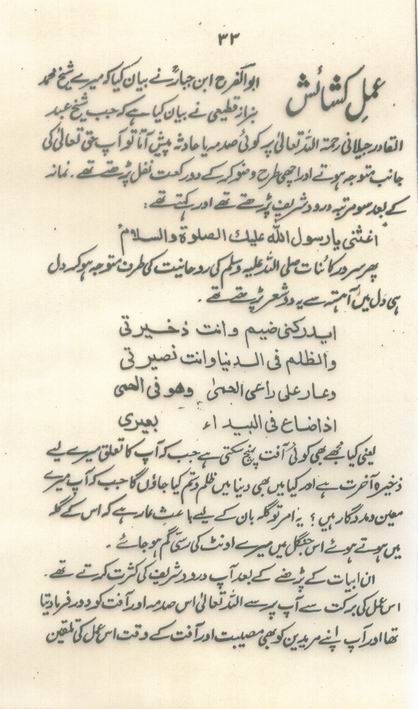 ۳۳
عملِ کشائش
ابوالفرح ابن جبارؒ نے بیان کیا کہ میرے شیخ محمد
بزاز قطیعی نے بیان کیا ہے کہ جب شیخ عبد
القادر جیلانی رحمۃ اللہ تعالیٰ پہ کوئی صدمہ یا حادثہ پیش آتا تو آپ حق تعالیٰ کی
جانب متوجہ ہوتے اور اچھی طرح وضو کر کے دو رکعت نفل پڑھتے تھے۔ نماز
کے بعد سو مرتبہ درود شریف پڑھتے تھے اور کہتے تھے:
اغثنی یا رسول اللہ علیک الصلوۃ والسلام
پھر سرور کائنات صلی اللہ علیہ وسلم کی روحانیت کی طرف متوجہ ہو کر دل
ہی دل میں آہستہ سے یہ دو شعر پڑھتے تھے۔
ایدرکنی ضیم وانت ذخیرتی
والظلم فی الدنیا وانت نصیرتی
وعار علی راعی الحمیٰ وھو فی الحمی
اذا ضاع فی البیداء بعیری
یعنی کیا مجھے بھی کوئی آفت پہنچ سکتی ہے جب کہ آپ کا تعلق میرے لیے
ذخیرہ آخرت ہے اور کیا میں بھی دنیا میں ظلم و ستم کیا جاؤں گا جب کہ آپ میرے
معین و مددگار ہیں؟ یہ امر تو گلہ بان کے لیے باعث عار ہے کہ اس کے گلہ
میں ہوتے ہوئے اس جنگل میں میرے اونٹ کی رسی گم ہو جائے۔
ان ابیات کے پڑھنے کے بعد آپ درود شریف کی کثرت کرتے تھے۔
اس عمل کی برکت سے آپ پر سے اللہ تعالیٰ اس صدمہ اور آفت کو دور فرما دیتا
تھا اور آپ اپنے مریدین کو بھی مصیبت اور آفت کے وقت اس عمل کی تلقین